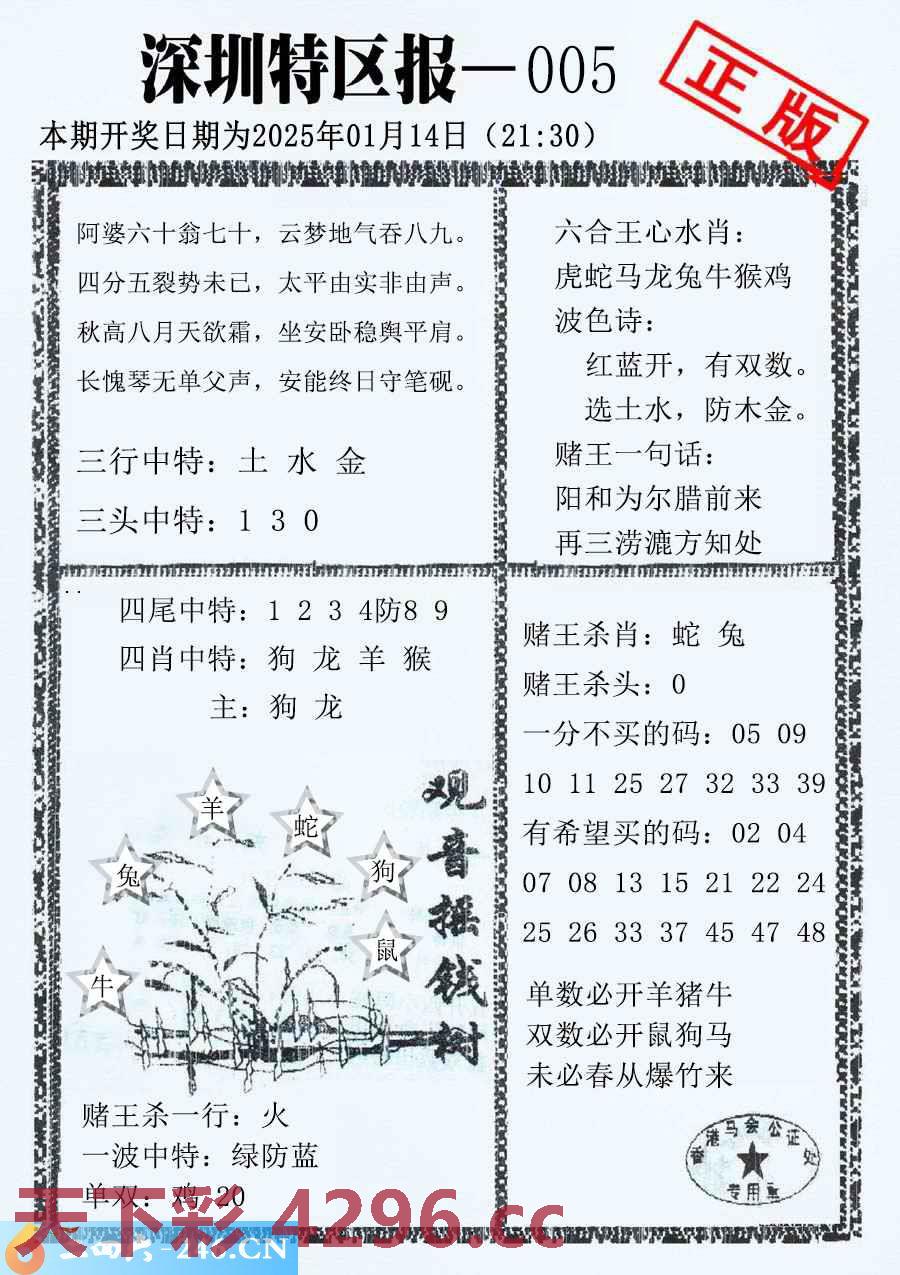 深圳特区报—005
正版
本期开奖日期为2025年01月14日（21:30）
阿婆六十翁七十，云梦地气吞八九。
四分五裂势未已，太平由实非由声。
秋高八月天欲霜，坐安卧稳舆平肩。
长愧琴无单父声，安能终日守笔砚。
三行中特：土 水 金
三头中特：1 3 0
六合王心水肖：
虎蛇马龙兔牛猴鸡
波色诗：
红蓝开，有双数。
选土水，防木金。
赌王一句话：
阳和为尔腊前来
再三涝漉方知处
四尾中特：1 2 3 4防8 9
四肖中特：狗 龙 羊 猴
主：狗 龙
羊
蛇
兔
狗
鼠
牛
观音摇钱树
赌王杀一行：火
一波中特：绿防蓝
单双：鸡 20
赌王杀肖：蛇 兔
赌王杀头：0
一分不买的码：05 09
10 11 25 27 32 33 39
有希望买的码：02 04
07 08 13 15 21 22 24
25 26 33 37 45 47 48
单数必开羊猪牛
双数必开鼠狗马
未必春从爆竹来
香港马会公证处
专用章
天下彩 4296.cc